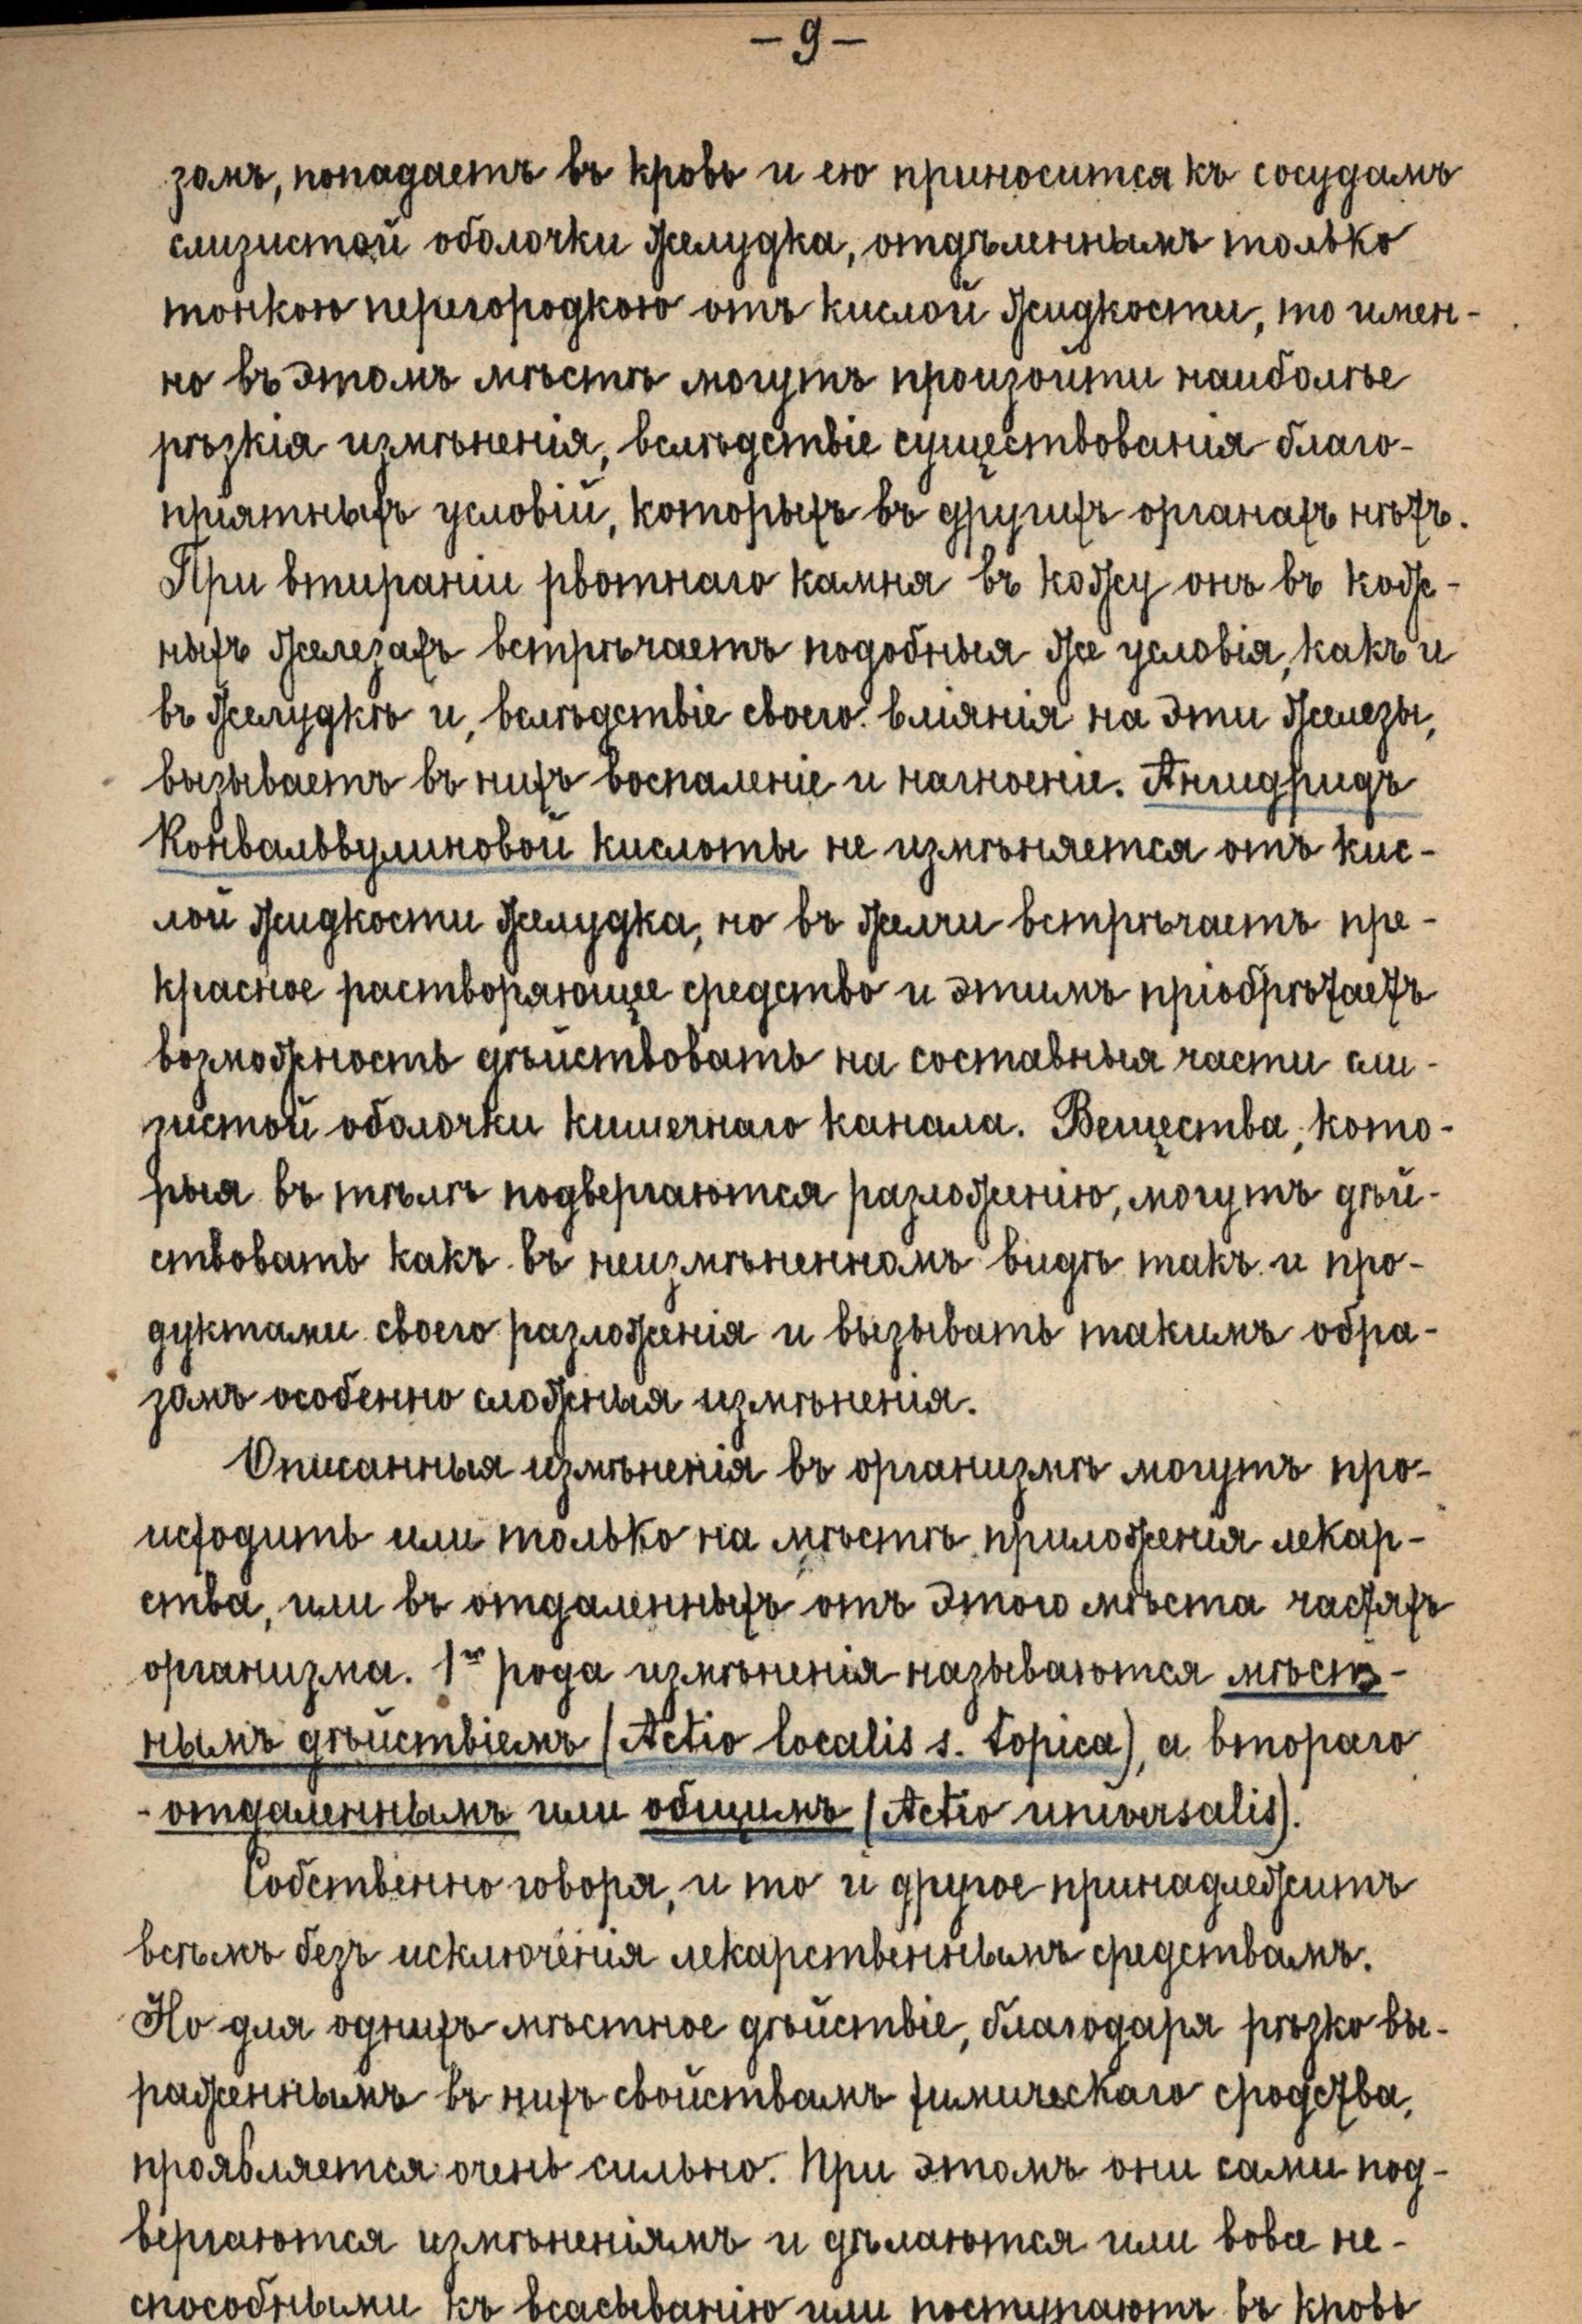 – 9 –
зомъ, попадаетъ въ кровь и ею приносится къ сосудамъ
слизистой оболочки желудка, отдѣленнымъ только
тонкою перегородкою отъ кислой жидкости, то имен-
но въ этомъ мѣстѣ могутъ произойти наиболѣе
рѣзкія измѣненія, вслѣдствіе существованія благо-
пріятныхъ условій, которыхъ въ другихъ органахъ нѣтъ.
При втираніи рвотнаго камня въ кожу онъ въ кож-
ныхъ железахъ встрѣчаетъ подобныя же условія, какъ и
въ желудкѣ и, вслѣдствіе своего вліянія на эти железы,
вызываетъ въ нихъ воспаленіе и нагноеніе. Ангидридъ
Конвальвулиновой кислоты не измѣняется отъ кис-
лой жидкости желудка, но въ желчи встрѣчаетъ пре-
красное растворяющее средство и этимъ пріобрѣтаетъ
возможность дѣйствовать на составныя части сли-
зистой оболочки кишечнаго канала. Вещества, кото-
рыя въ тѣлѣ подвергаются разложенію, могутъ дѣй-
ствовать какъ въ неизмѣненномъ видѣ такъ и про-
дуктами своего разложенія и вызывать такимъ обра-
зомъ особенно сложныя измѣненія.
Описанныя измѣненія въ организмѣ могутъ про-
исходить или только на мѣстѣ приложенія лекар-
ства, или въ отдаленныхъ отъ этого мѣста частяхъ
организма. 1го рода измѣненія называются мѣст-
нымъ дѣйствіемъ (Actio localis s. topica), а втораго
- отдаленнымъ или общимъ (Actio universalis).
Собственно говоря, и то и другое принадлежитъ
всѣмъ безъ исключенія лекарственнымъ средствамъ.
Но для однихъ мѣстное дѣйствіе, благодаря рѣзко вы-
раженнымъ въ нихъ свойствамъ химическаго сродства,
проявляется очень сильно. При этомъ они сами под-
вергаются измѣненіямъ и дѣлаются или вовсе не-
способными къ всасыванію или поступаютъ въ кровь